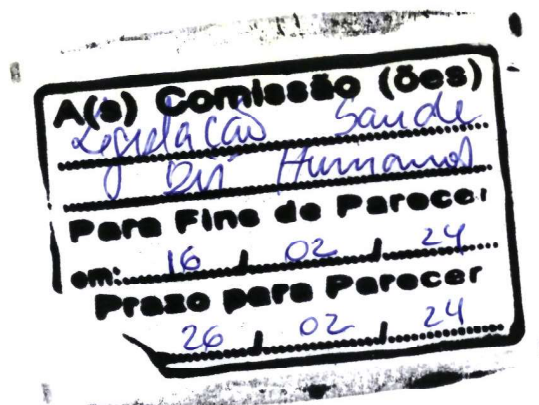 A(s) Comissão (ões)
Legislação Saude
Dir Humanos
Para Fins de Parecer
em: 16 / 02 / 24
Prazo para Parecer
26 / 02 / 24